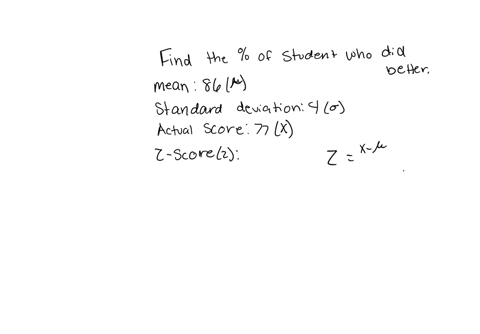 Find the % of student who did
better.
mean: 86 (μ)
Standard deviation: 4 (σ)
Actual Score: 77 (X)
Z-Score(z): Z = x-μ